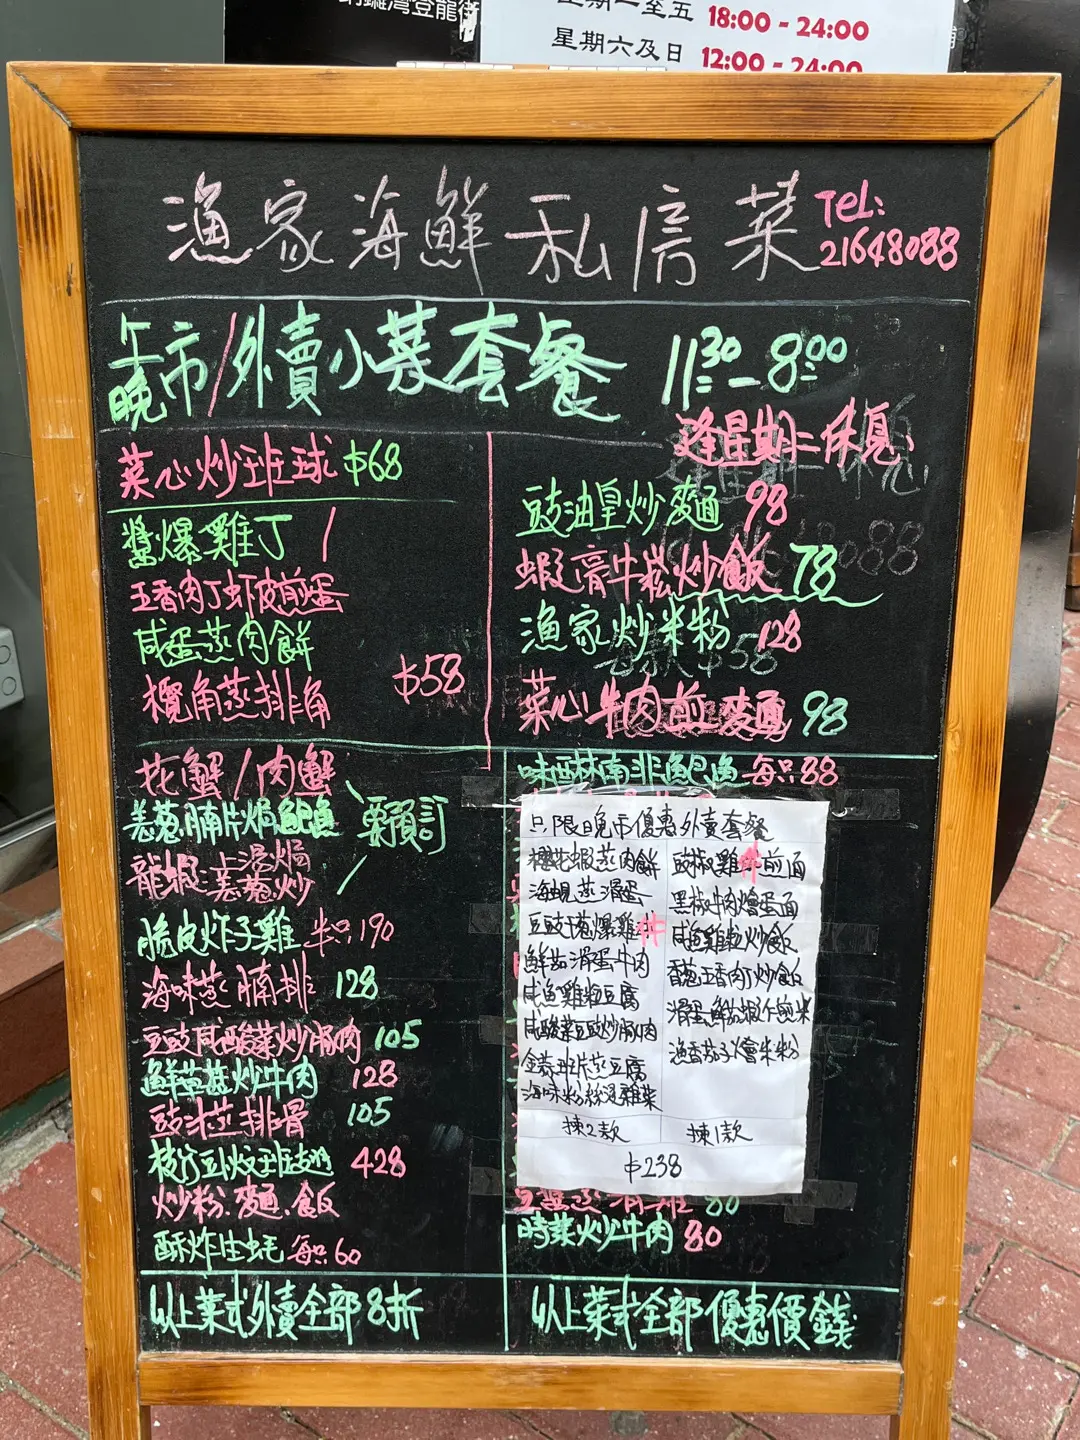 銅鑼灣登龍街
星期一至五 18:00 - 24:00
星期六及日 12:00 - 24:00
漁家海鮮私房菜
TeL:
21648088
午晚市/外賣小菜套餐 11:30 - 8:00
逢星期二休息
菜心炒班球 $68
醬爆雞丁
五香肉丁虾皮煎蛋
咸蛋蒸肉餅
欖角蒸排骨
$58
豉油皇炒麵 98
蝦膏牛崧炒飯 78
漁家炒米粉 128
菜心牛肉煎麵 98
花蟹/肉蟹
姜葱腩片焗鮑魚
龍蝦:上湯焗
姜葱炒
要預訂
脆皮炸子雞 半只190
海味蒸腩排 128
豆豉咸酸菜炒豚肉 105
鮮草菇炒牛肉 128
豉汁蒸排骨 105
枝竹豆卜炆班翅 428
炒粉、麵、飯
酥炸生蚝 每只60
以上菜式外賣全部8折
南非鮑魚 每只88
只限晚市優惠外賣套餐
櫻花蝦蒸肉餅
海蜆蒸滑蛋
豆豉干葱爆雞件
鮮茄滑蛋牛肉
咸魚雞粒豆腐
咸酸菜豆豉炒豚肉
金菇班片蒸豆腐
海味粉絲浸雜菜
揀2款
豉椒雞件煎面
黑椒牛肉燴蛋面
咸魚雞粒炒飯
香葱五香肉丁炒飯
滑蛋鮮茄蝦仁煎米
漁香茄子燴米粉
揀1款
$238
80
時菜炒牛肉 80
以上菜式全部優惠價錢